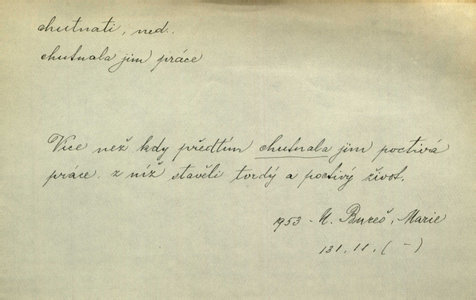 chutnati, ned.
chutnala jim práce
Více než kdy předtím chutnala jim poctivá
práce z níž stavěli tvrdý a poctivý život.
1953 M. Bureš, Marie
131.11. (-)